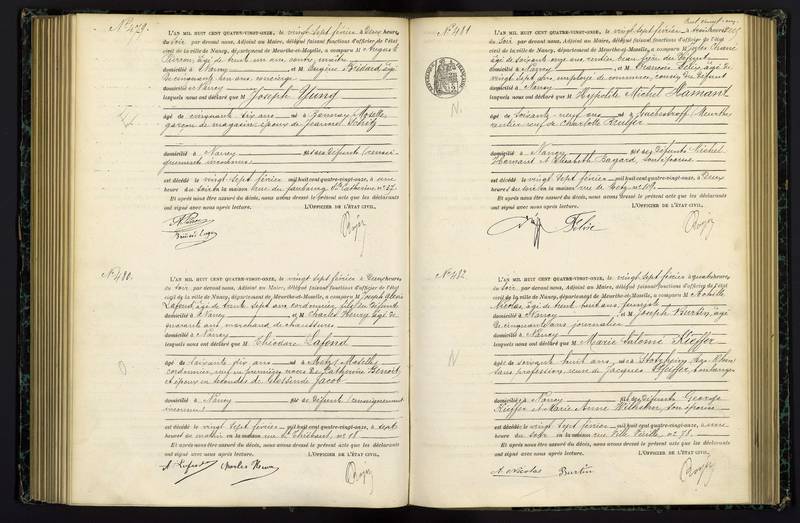 N° 479.
L'AN MIL HUIT CENT QUATRE-VINGT-ONZE, le vingt sept février à Deux heures
du Soir par devant nous, Adjoint au Maire, délégué faisant fonctions d'officier de l'état
civil de la ville de Nancy, département de Meurthe-et-Moselle, a comparu M Auguste
Pierron, âgé de trente un ans,
domicilié à Nancy et M Eugène Bédard âgé
de cinquante ans, concierge
domicilié à Nancy
lesquels nous ont déclaré que M Joseph Yung
âgé de cinquante dix ans né à Moselle
garçon de magasin, époux de
domicilié à Nancy fils des Défunts (renseignements inconnus)
est décédé le vingt sept février mil huit cent quatre-vingt-onze, à une
heure du soir en la maison rue du faubourg Ste Catherine n° 27.
Et après nous être assuré du décès, nous avons dressé le présent acte que les déclarants
ont signé avec nous après lecture. L'OFFICIER DE L'ÉTAT CIVIL,
N° 480.
L'AN MIL HUIT CENT QUATRE-VINGT-ONZE, le vingt sept février à Deux heures
du Soir par devant nous, Adjoint au Maire, délégué faisant fonctions d'officier de l'état
civil de la ville de Nancy, département de Meurthe-et-Moselle, a comparu M Joseph
Lafond âgé de trente sept ans cordonnier, fils du Défunt
domicilié à Nancy et M Charles Henry, âgé de
quarante ans, marchand de chaussures
domicilié à Nancy
lesquels nous ont déclaré que M Théodore Lafond
âgé de soixante dix ans né à Metz (Moselle)
cordonnier, veuf en premières noces de Catherine Benoit
et époux en secondes de Glossinde Jacob
domicilié à Nancy fils de Défunts (renseignements
inconnus)
est décédé le vingt sept février mil huit cent quatre-vingt-onze, à sept
heures du matin en la maison rue St Thiébaut, n° 18
Et après nous être assuré du décès, nous avons dressé le présent acte que les déclarants
ont signé avec nous après lecture. L'OFFICIER DE L'ÉTAT CIVIL,
A Lafond Charles Henry
N° 481
L'AN MIL HUIT CENT QUATRE-VINGT-ONZE, le vingt sept février à heures
du Soir par devant nous, Adjoint au Maire, délégué faisant fonctions d'officier de l'état
civil de la ville de Nancy, département de Meurthe-et-Moselle, a comparu M Jules
âgé de soixante cinq ans, rentier, beau frère du Défunt
domicilié à Nancy et M François Félix, âgé de
vingt sept ans, employé de commerce, cousin du Défunt
domicilié à Nancy
lesquels nous ont déclaré que M Hyppolite Michel Hamant
N.
âgé de Soixante neuf ans né à (Meurthe)
rentier veuf de Charlotte
domicilié à Nancy fils des Défunts Michel
Hamant & Elisabeth Bagard, son épouse
est décédé le vingt sept février mil huit cent quatre-vingt-onze, à Deux
heures du soir en la maison rue de Metz n° 109.
Et après nous être assuré du décès, nous avons dressé le présent acte que les déclarants
ont signé avec nous après lecture. L'OFFICIER DE L'ÉTAT CIVIL,
Félix
N° 482.
L'AN MIL HUIT CENT QUATRE-VINGT-ONZE, le vingt sept février à quatre heures
du Soir par devant nous, Adjoint au Maire, délégué faisant fonctions d'officier de l'état
civil de la ville de Nancy, département de Meurthe-et-Moselle, a comparu M Achille
Nicolas, âgé de trente huit ans,
domicilié à Nancy et M Joseph Burtin, âgé
de cinquante ans journalier
domicilié à Nancy
lesquels nous ont déclaré que M Marie Salomé Kieffer
N
âgée de soixante huit ans, née à Stotzheim (Bas-Rhin)
sans profession, veuve de Jacques Pfeiffer, boulanger
domiciliée à Nancy fille des Défunts George
Kieffer et Marie Anne Wilhelm, son épouse
est décédée le vingt sept février mil huit cent quatre-vingt-onze, à une
heure du soir en la maison rue Ville Vieille, n° 71.
Et après nous être assuré du décès, nous avons dressé le présent acte que les déclarants
ont signé avec nous après lecture. L'OFFICIER DE L'ÉTAT CIVIL,
A Nicolas Burtin